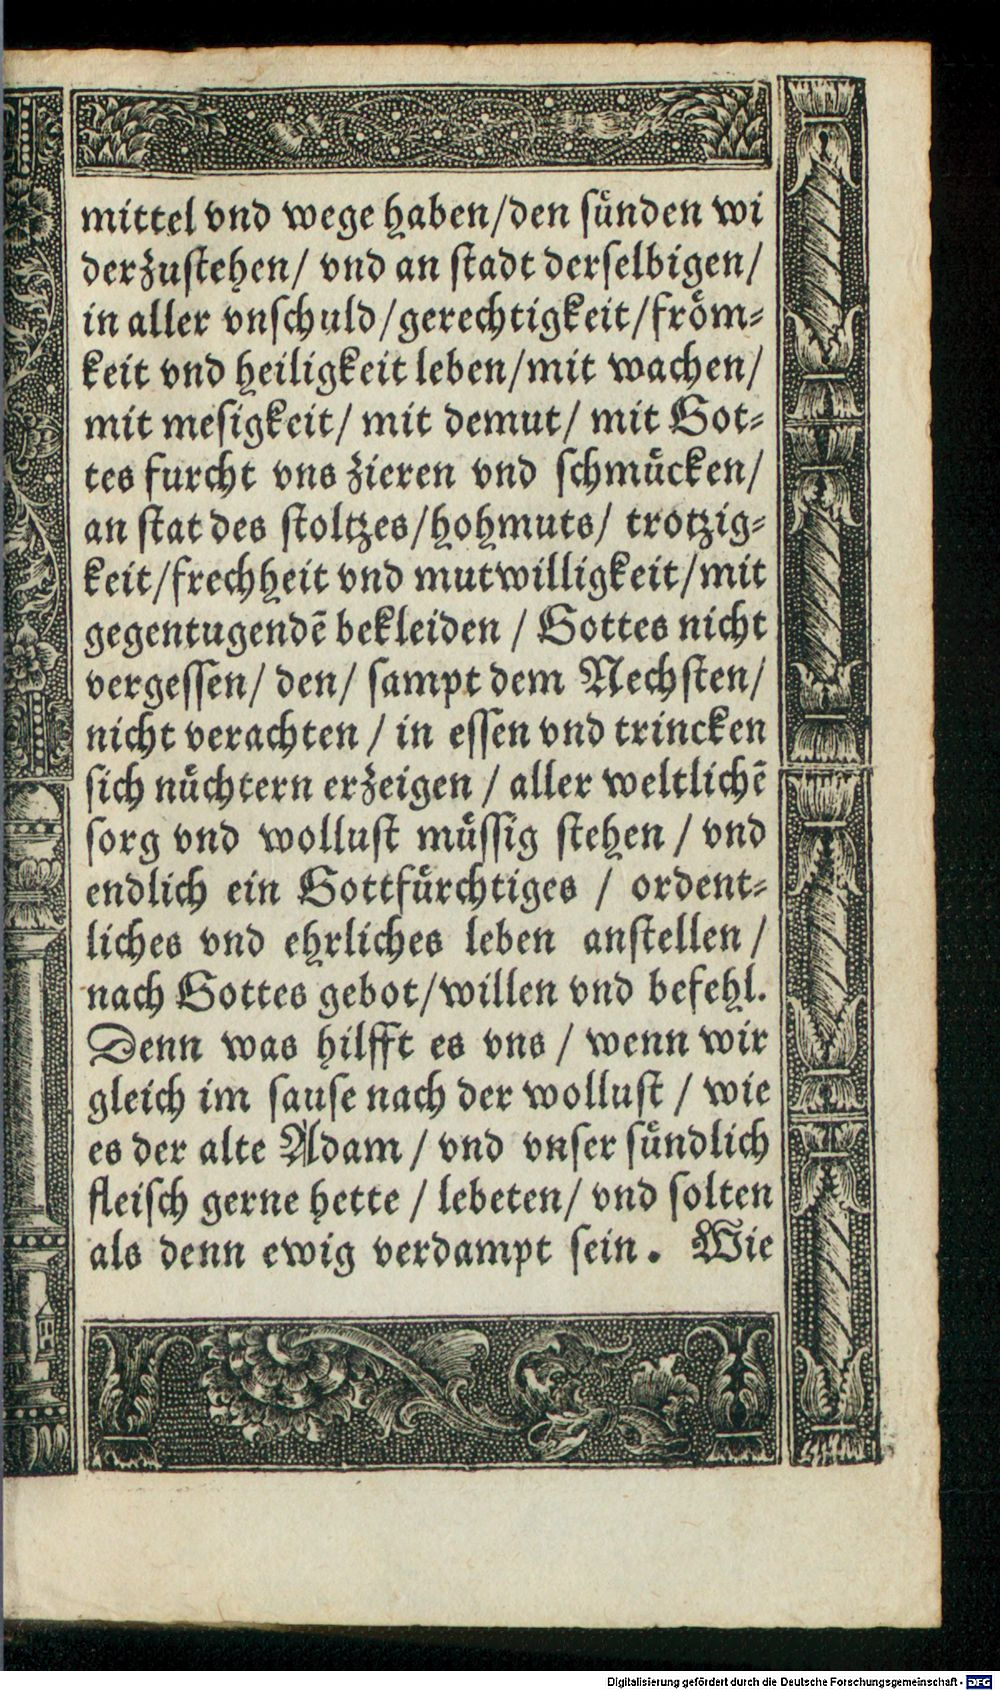 mittel vnd wege haben/den sünden wi
derzustehen/ vnd an stadt derselbigen/
in aller vnschuld/gerechtigkeit/fröm⸗
keit vnd heiligkeit leben/mit wachen/
mit mesigkeit/ mit demut/ mit Got⸗
tes furcht vns zieren vnd schmücken/
an stat des stoltzes/hohmuts/ trotzig⸗
keit/frechheit vnd mutwilligkeit/mit
gegentugendē bekleiden / Gottes nicht
vergessen/ den/ sampt dem Nechsten/
nicht verachten / in essen vnd trincken
sich nüchtern erzeigen / aller weltlichē
sorg vnd wollust müssig stehen / vnd
endlich ein Gottfürchtiges / ordent⸗
liches vnd ehrliches leben anstellen /
nach Gottes gebot/willen vnd befehl.
Denn was hilfft es vns / wenn wir
gleich im sause nach der wollust / wie
es der alte Adam / vnd vnser sündlich
fleisch gerne hette / lebeten/ vnd solten
als denn ewig verdampt sein. Wie
Digitalisierung gefördert durch die Deutsche Forschungsgemeinschaft - DFG